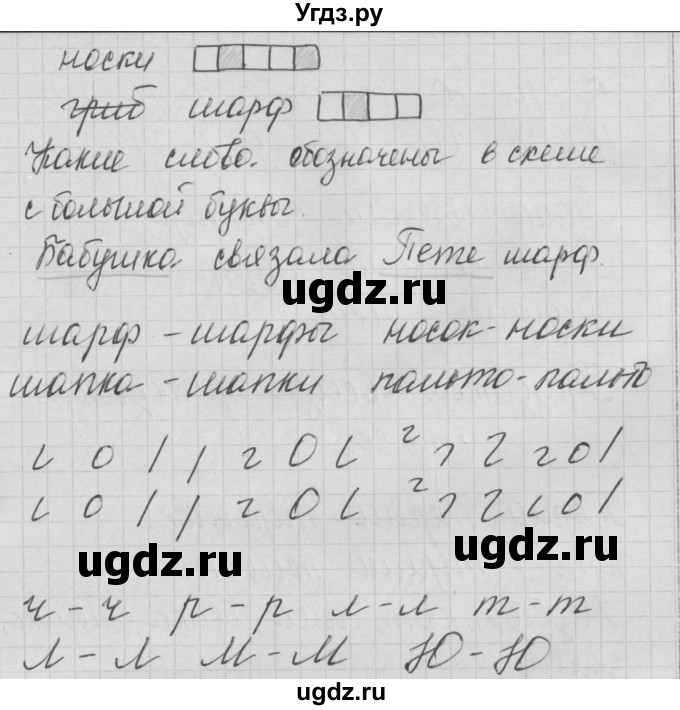 Угдз.ру
носки
гриб шарф
Какие слова обозначены в схеме
с большой буквы.
Бабушка связала Пете шарф.
ugdz.ru
шарф - шарфы носок - носки
шапка - шапки пальто - пальто
ugdz.ru
ugdz.ru
ч - ч р - р л - л т - т
Л - Л М - М Ю - Ю
ugdz.ru